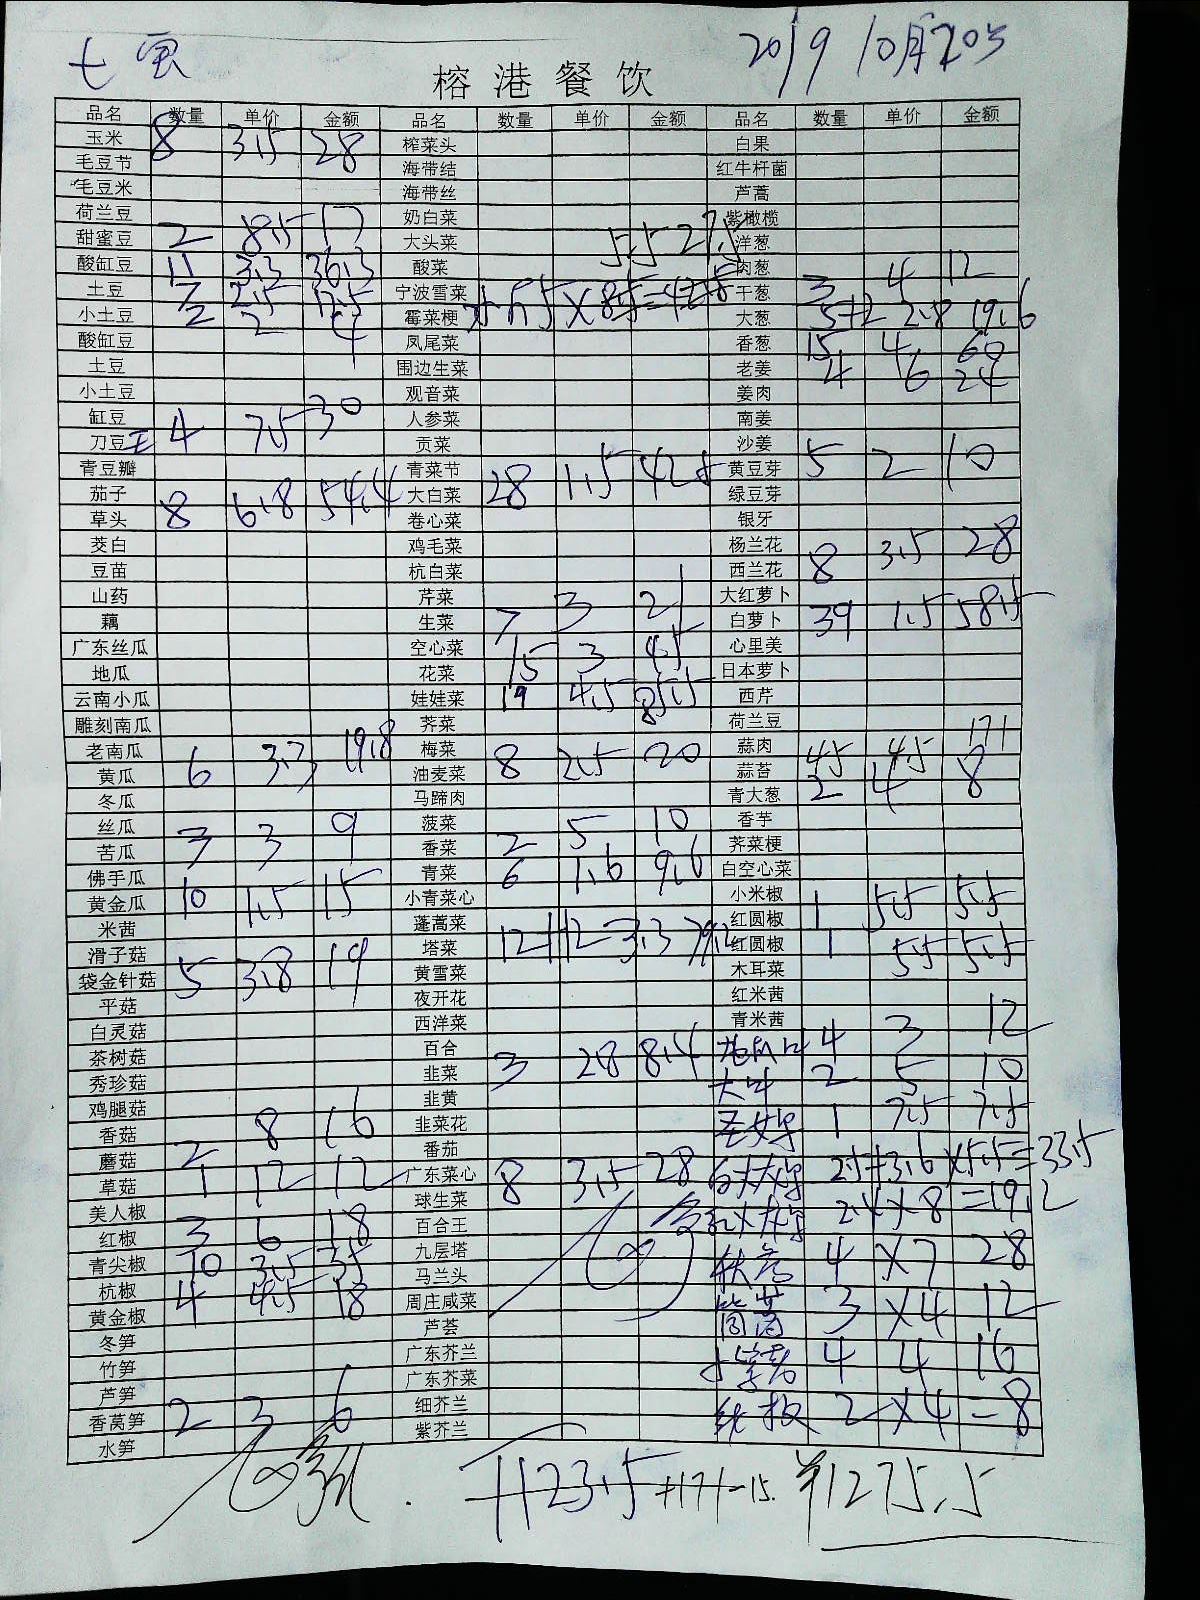 七 2019 10月20号
榕港餐饮
品名 数量 单价 金额 品名 数量 单价 金额 品名 数量 单价 金额
玉米 8 3.5 28 榨菜头 白果
毛豆节 海带结 红牛杆菌
毛豆米 海带丝 芦蒿
荷兰豆 奶白菜 紫橄榄
甜蜜豆 2 8.5 17 大头菜 5.5 27.5 洋葱
酸缸豆 11 3.3 36.3 酸菜 肉葱 12
土豆 7 2.5 17.5 宁波雪菜 干葱 3 4
小土豆 2 2 4 霉菜梗 大葱 5+2 2.8 19.6
酸缸豆 凤尾菜 香葱 15 4 60
土豆 围边生菜 老姜 4 6 24
小土豆 观音菜 姜肉
缸豆 30 人参菜 南姜
刀豆 4 7.5 贡菜 沙姜
青豆瓣 青菜节 黄豆芽 5 2 10
茄子 大白菜 28 1.5 42 绿豆芽
草头 8 6.8 54.4 卷心菜 银牙
茭白 鸡毛菜 杨兰花
豆苗 杭白菜 西兰花 8 3.5 28
山药 芹菜 大红萝卜
藕 生菜 7 3 21 白萝卜 39 1.5 58.5
广东丝瓜 空心菜 心里美
地瓜 花菜 15 3 45 日本萝卜
云南小瓜 娃娃菜 19 4.5 85.5 西芹
雕刻南瓜 荠菜 荷兰豆
老南瓜 梅菜 蒜肉 171
黄瓜 6 3.3 19.8 油麦菜 8 2.5 20 蒜苔 45 4.5
冬瓜 马蹄肉 青大葱 2 4 8
丝瓜 菠菜 香芋
苦瓜 3 3 9 香菜 2 5 10 荠菜梗
佛手瓜 青菜 6 1.6 9.6 白空心菜
黄金瓜 10 1.5 15 小青菜心 小米椒 1 5.5 5.5
米茜 蓬蒿菜 红圆椒
滑子菇 塔菜 12+12 3.3 79.2 红圆椒 1 5.5 5.5
袋金针菇 5 3.8 19 黄雪菜 木耳菜
平菇 夜开花 红米茜
白灵菇 西洋菜 青米茜
茶树菇 百合 4 3 12
秀珍菇 韭菜 3 28 84 大叶 2 5 10
鸡腿菇 韭黄 圣女果 1 7.5 7.5
香菇 韭菜花
蘑菇 2 8 16 番茄 2.5+3.6 ×5.5=33.5
草菇 1 12 12 广东菜心 8 3.5 28
美人椒 球生菜 2.4×8=19.2
红椒 3 6 18 百合王
青尖椒 10 3.5 35 九层塔 4 ×7 28
杭椒 4 4.5 18 马兰头
黄金椒 周庄咸菜 3 ×4 12
冬笋 芦荟
竹笋 广东芥兰 4 4 16
芦笋 广东芥菜
香莴笋 2 3 6 细芥兰 2×4=8
水笋 紫芥兰
1123.5 +171-15. ¥1275.5